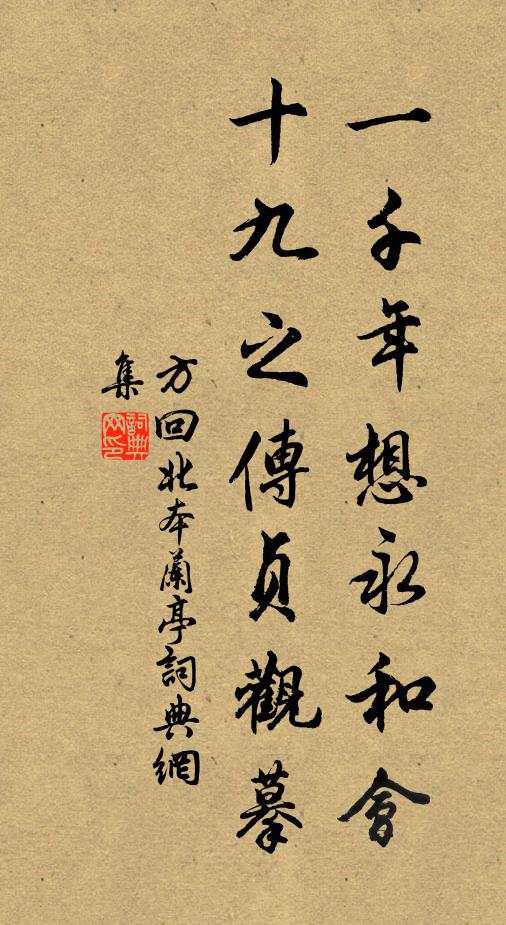 一千年想永和會
十九之傳貞觀摹
方回北本蘭亭詞典網
集
詞典網印